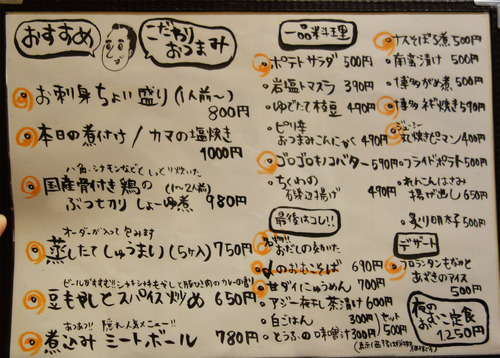 おすすめ
こだわり
おつまみ
お刺身ちょい盛り(1人前〜)
800円
本日の煮付け/カマの塩焼き
1000円
八角・シナモンなどと じっくり炊いた
国産骨付き鶏の(1〜2人前)
ぶつ切りしょーゆ煮 980円
オーダーが入って包みます
蒸したてしゅうまい(5ヶ入) 750円
豆もやしとスパイス炒め 650円
あつあつ!! 隠れ人気メニュー!!
煮込みミートボール 780円
一品料理
ポテトサラダ 500円
岩塩トマスラ 390円
ゆでたて枝豆 490円
ピリ辛
おつまみこんにゃく 490円
ゴロゴロキノコバター 590円
ちくわの
磯辺揚げ 490円
最後はコレ!!
名物!!
おだしの
のおぶこそば 690円
甘ダイにゅうめん 700円
アジ一夜干し茶漬け 600円
白ごはん 300円
とうふの味噌汁 300円
セット
500円
ナスそぼろ煮 500円
南蛮漬け 500円
博多がめ煮 500円
博多ネギ焼き 590円
ジューシー
丸焼きピーマン 400円
フライドポテト 500円
れんこんはさみ
揚げ出し 650円
炙り明太子 500円
デザート
フロランタンもなかと
あずきのアイス
500円
夜の
おぶこ定食
1250円